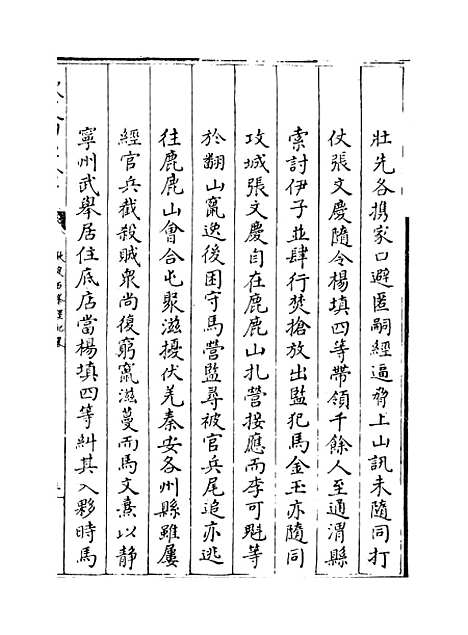 壯先各携家口避匿嗣經逼脅上山訊未隨同打
仗張文慶隨令楊填四等帶領千餘人至通渭縣
索討伊子並肆行焚搶放出監犯馬金玉亦隨同
攻城張文慶自在鹿鹿山扎營接應而李可魁等
於翻山竄逸後困守馬營監尋被官兵尾追亦逃
往鹿鹿山會合屯聚滋擾伏羌秦安各州縣雖屢
經官兵截殺賊衆尚復窮竄滋蔓而馬文熹以静
寧州武舉居住底店當楊填四等糾其入夥時馬